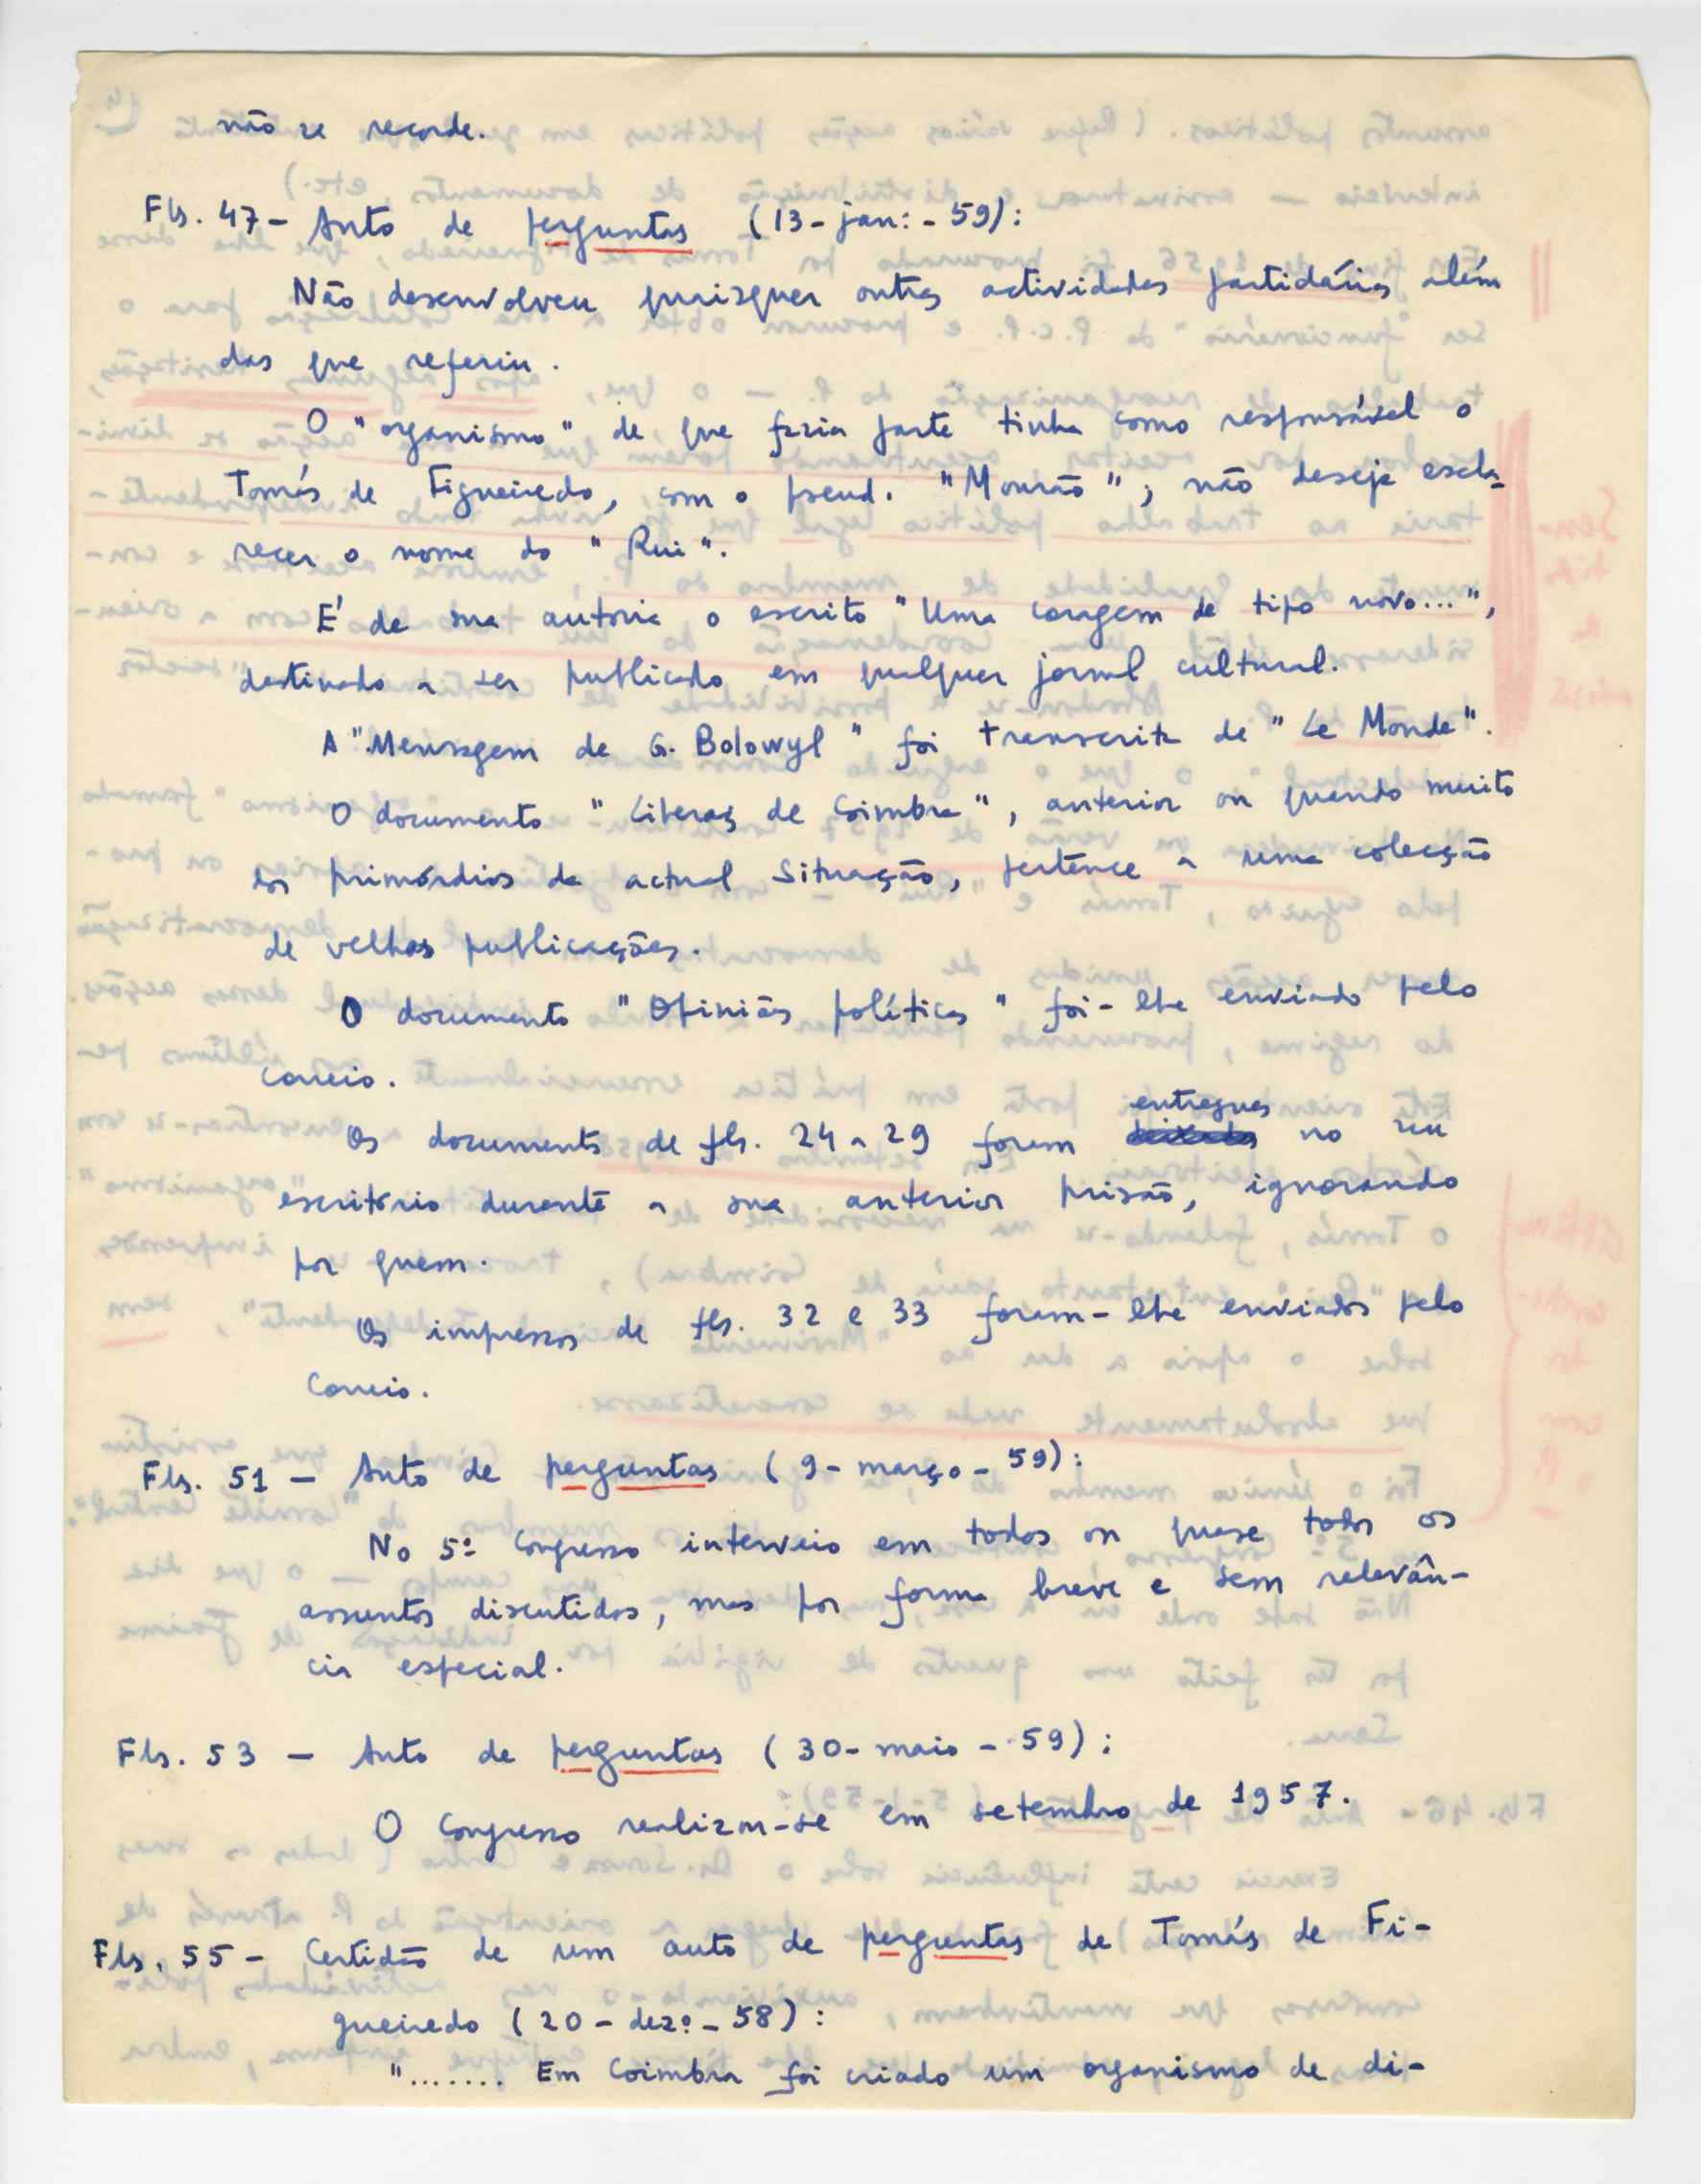 não se recorde.
Fls. 47 - Auto de perguntas (13-jan:-59):
Não desenvolveu quaisquer outras actividades partidárias além
das que referiu.
O "organismo" de que fazia parte tinha como responsável o
Tomás de Figueiredo, com o pseud. "Mourão"; não deseja escla-
recer o nome do "Rui".
É de sua autoria o escrito "Uma coragem de tipo novo...",
destinado a ser publicado em qualquer jornal cultural.
A "Mensagem de G. Bolowyl" foi transcrita de "Le Monde".
O documento "Liberais de Coimbra", anterior ou quando muito
dos primórdios da actual Situação, pertence a uma colecção
de velhas publicações.
O documento "Opiniões políticas" foi-lhe enviado pelo
correio.
Os documentos de fls. 24 a 29 foram entregues no seu
escritório durante a sua anterior prisão, ignorando
por quem.
Os impressos de fls. 32 e 33 foram-lhe enviados pelo
Correio.
Fls. 51 — Auto de perguntas (9-março-59):
No 5º Congresso interveio em todos ou quase todos os
assuntos discutidos, mas por forma breve e sem relevân-
cia especial.
Fls. 53 — Auto de perguntas (30-maio-59):
O Congresso realizou-se em setembro de 1957.
Fls. 55 - Certidão de um auto de perguntas de Tomás de Fi-
gueiredo (20-dezº-58):
"....... Em Coimbra foi criado um organismo de di-